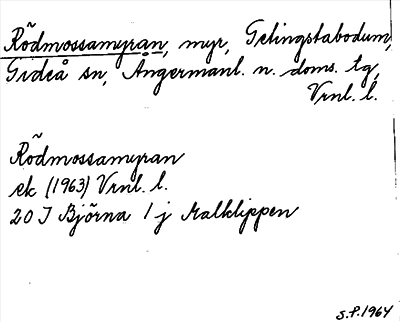 Rödmossamyran, myr, Getingstabodum,
Gideå sn, Ångermanl. n. doms. tg,
Vrnl. l.
Rödmossamyran
ek (1963) Vrnl. l.
20 I Björna 1 j Malklippen
S.P. 1964